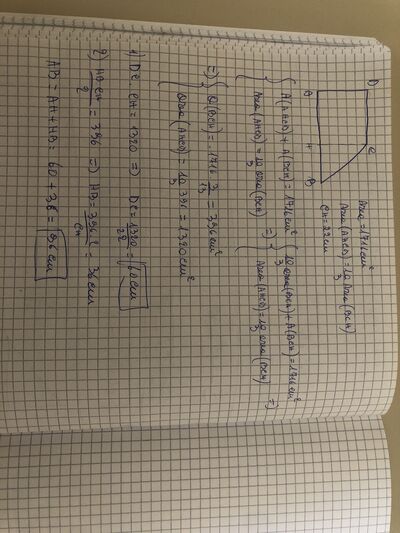 D
C
A
H
B
Area = 1716 cm²
Area (AHCD) = 10/3 Area (BCH)
CH = 22 cm
{ A(AHCD) + A(BCH) = 1716 cm²
Area (AHCD) = 10/3 area (BCH) =>
{ 10/3 area (BCH) + A(BCH) = 1716 cm²
Area (AHCD) = 10/3 area (BCH) =>
=> { A(BCH) = 1716 · 3/13 = 396 cm²
Area (AHCD) = 10/3 396 = 1320 cm²
1) DC · CH = 1320 => DC = 1320/22 = 60 cm
2) HB · CH / 2 = 396 => HB = 396 · 2 / CH = 36 cm
AB = AH + HB = 60 + 36 = 96 cm